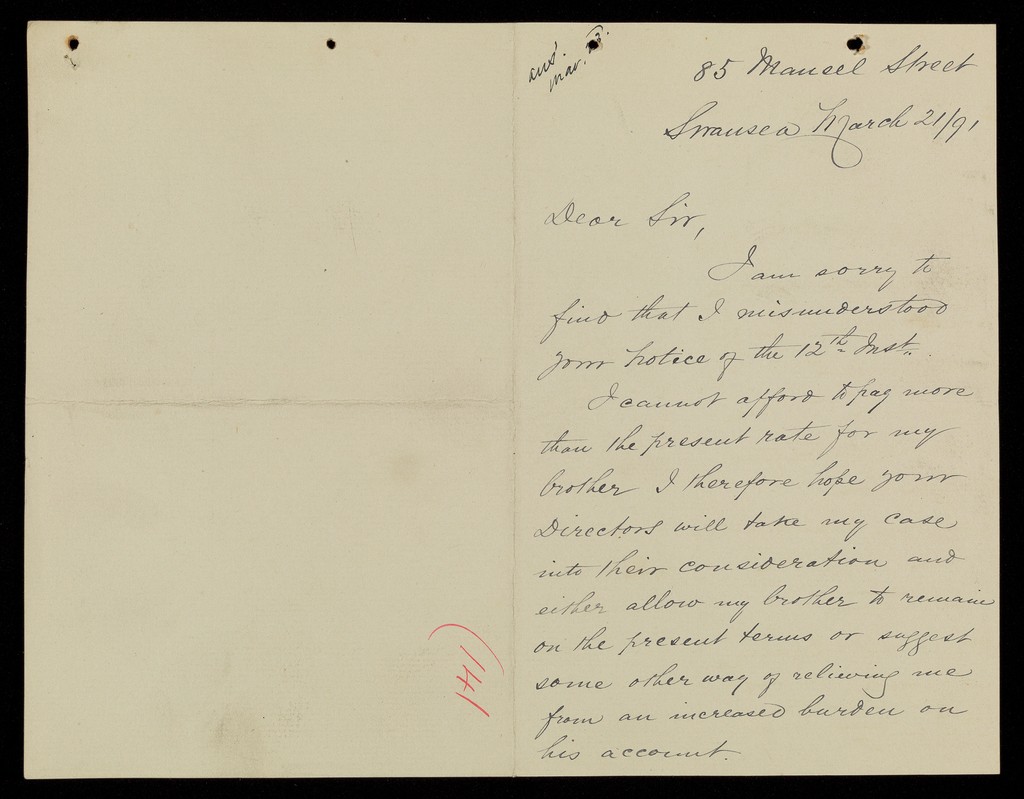 ansd
Mar. 23.
85 Mansel Street
Swansea March 21/91
Dear Sir,
I am sorry to
find that I misunderstood
your notice of the 12th Inst.
I cannot afford to pay more
than the present rate for my
brother I therefore hope your
Directors will take my case
into their consideration and
either allow my brother to remain
on the present terms or suggest
some other way of relieving me
from an increased burden on
his account.
141)